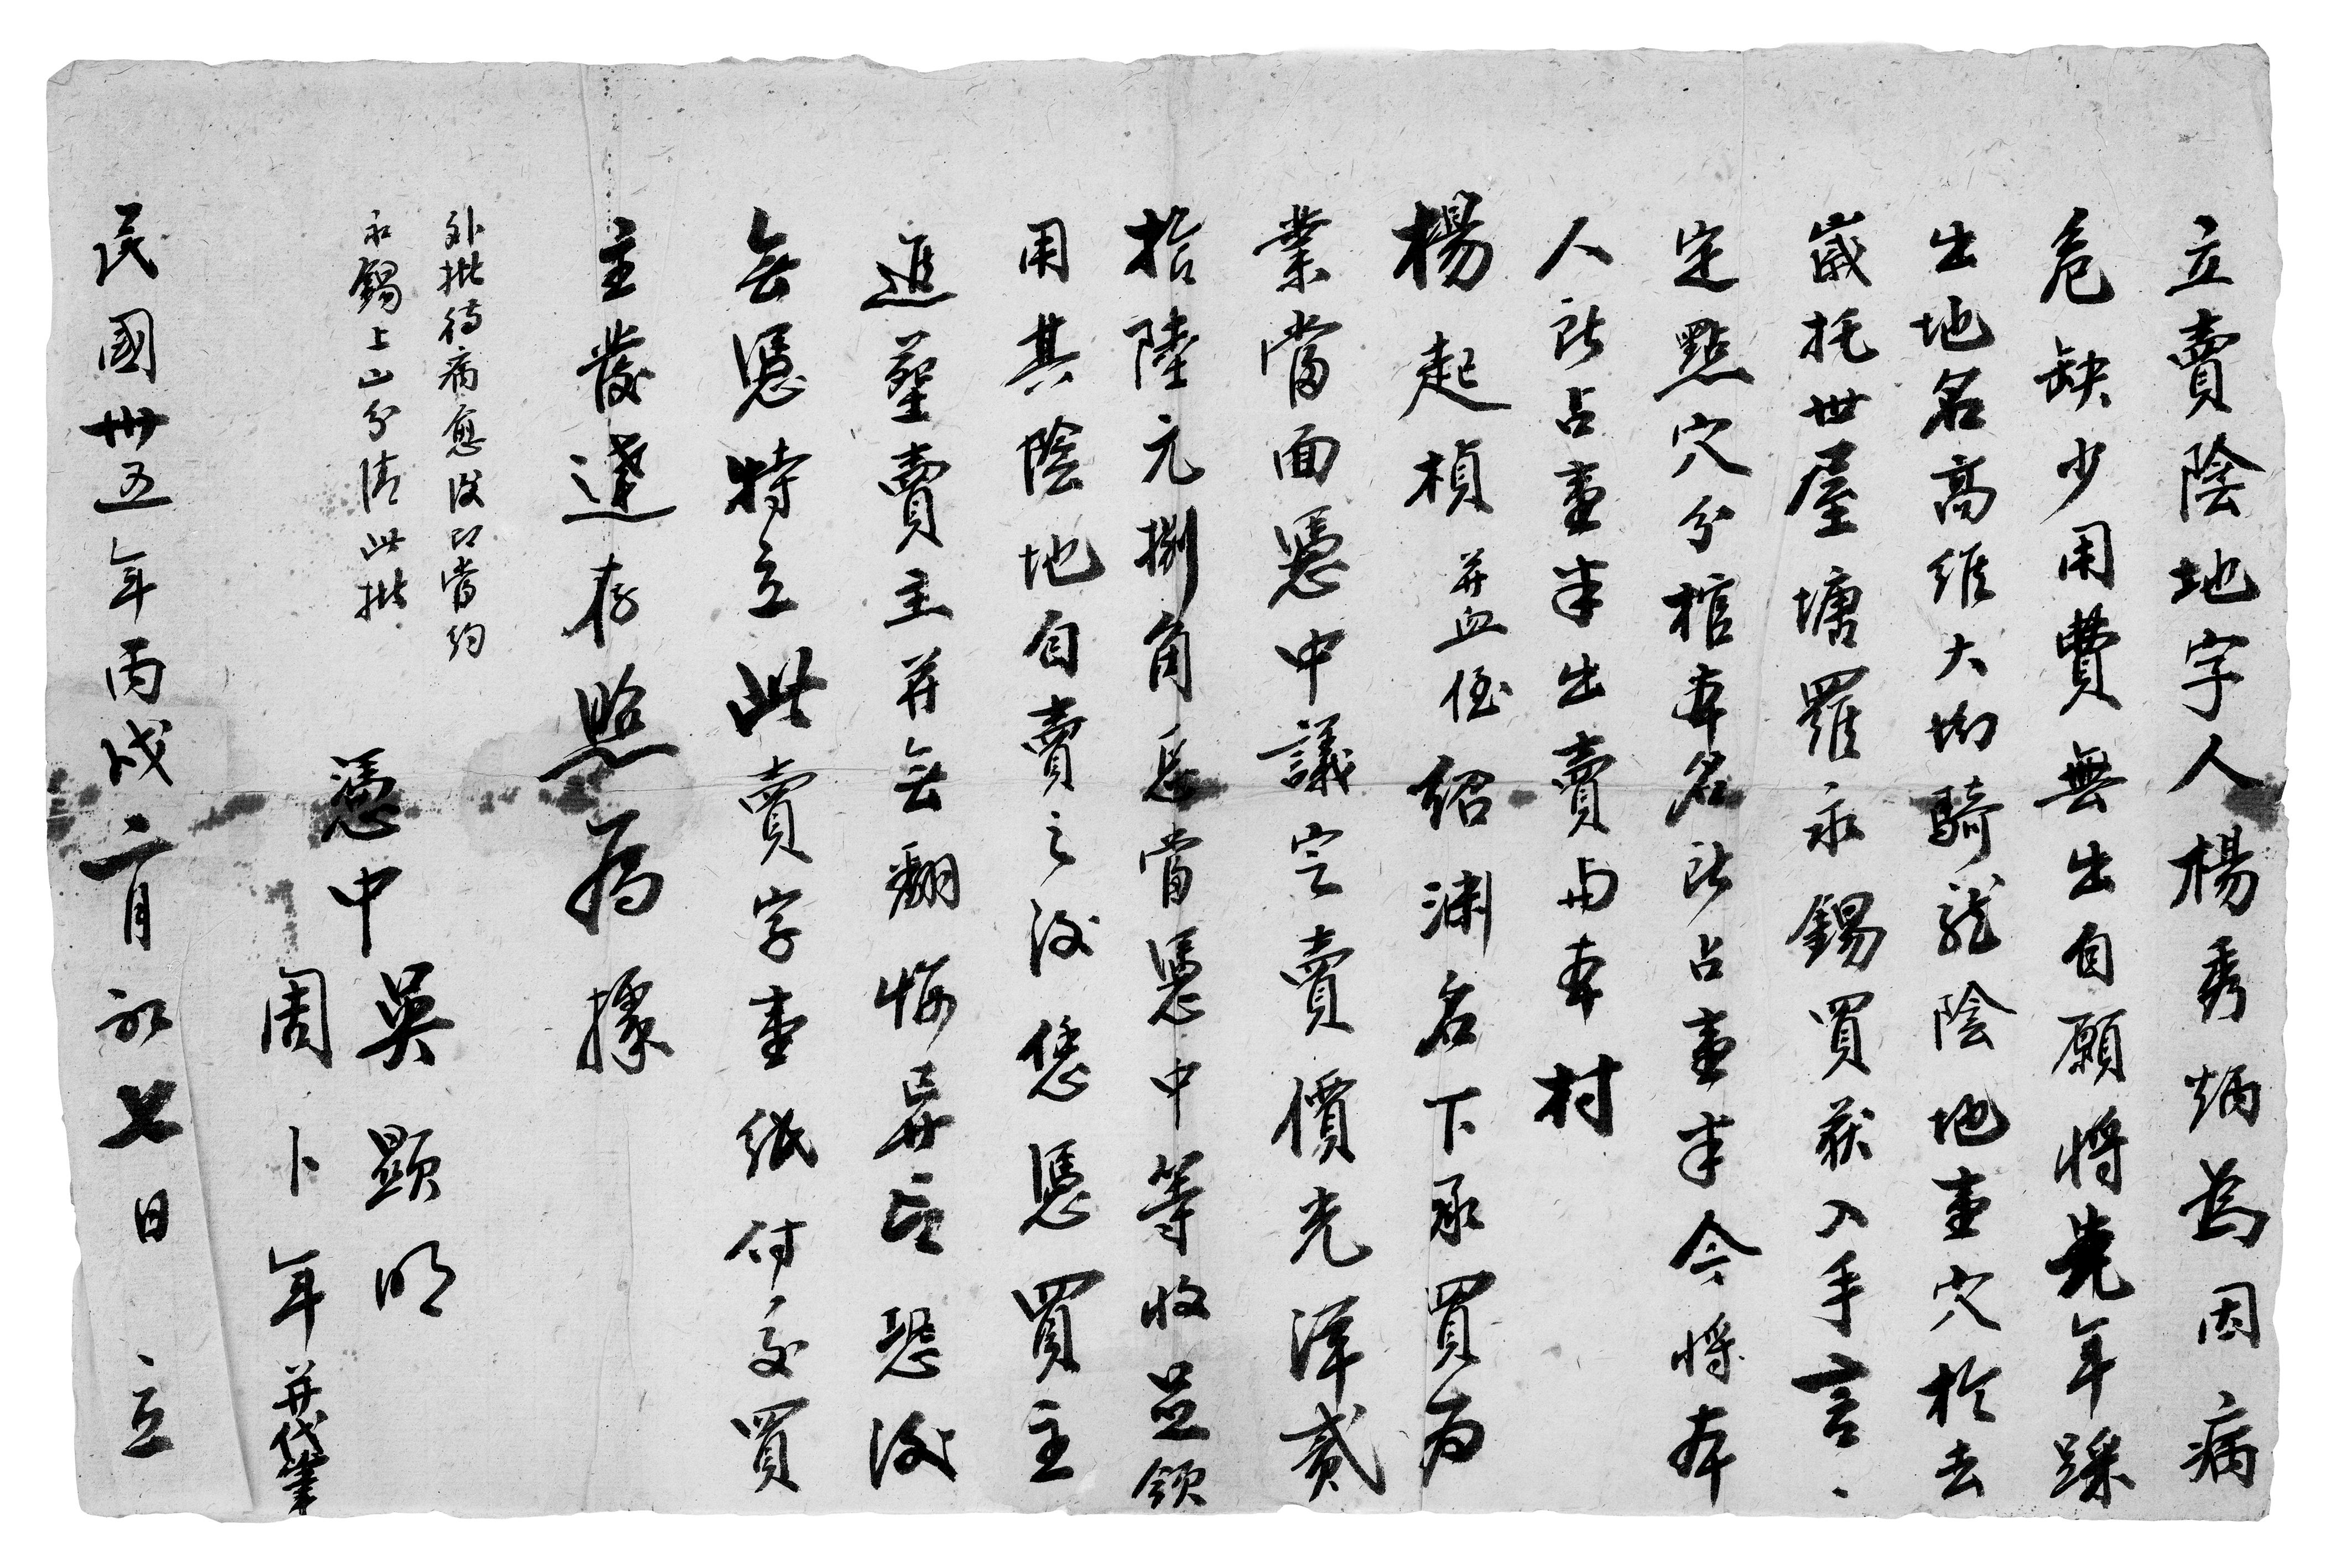 立賣陰地字人楊秀炳為因病
危缺少用費無出自願將先年踩
出地名高維大坳騎龍陰地壹穴於去
歲托世屋塘羅永錫買获入手言、
定點穴分棺本名所占壹半今將本
人所占壹半出賣与本村
楊起楨并血侄紹渊名下承買為
業當面憑中議定賣價光洋贰
拾陸元捌角居當憑中等收並領
用其陰地自賣之後恁憑買主
進葬賣主并無翻悔異言恐後
無憑特立此賣字壹纸付交買
主發達存照為據
外批待病愈後即當約
永錫上山分清此批
憑中吳顯明
周卜年并代筆
民國卅五年丙戌二月初七日立